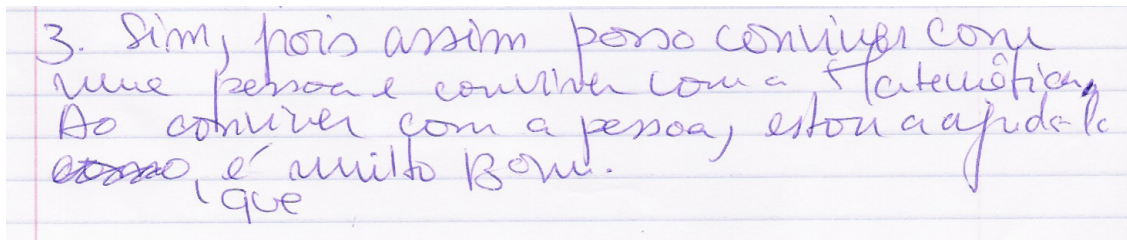 3. Sim, pois assim posso conviver com
uma pessoa e conviver com a Matemática,
Ao conviver com a pessoa, estou a ajuda-la
, é muito Bom.
que